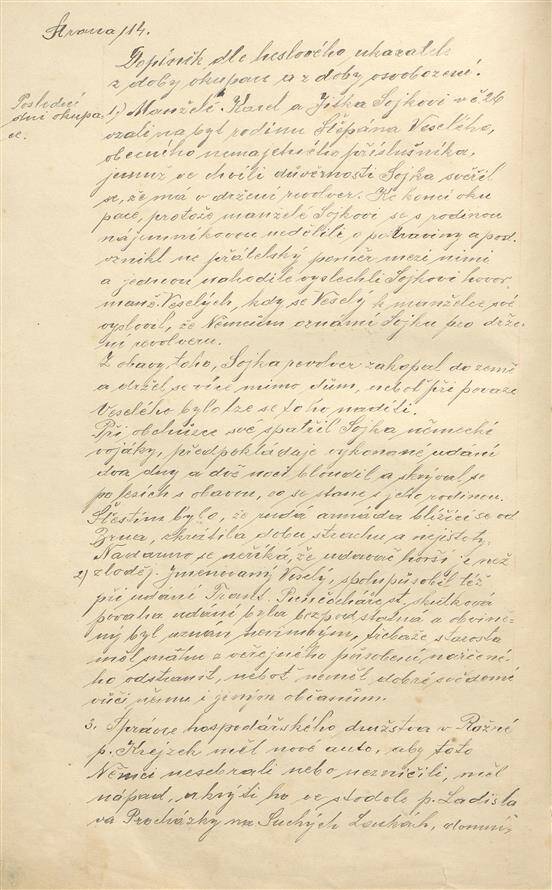 Strana 114.
Doplněk dle heslového ukazatele
z doby okupace a z doby osvobození.
Poslední
dni okupa
ce.
1.) Manželé Karel a Jiška Sojkovi v č. 26
vzali na byt rodinu Štěpána Veselého,
obecního nemajetného příslušníka,
jemuž ve chvíli důvěrnosti Sojka svěřil
se, že má v držení revolver. Ke konci oku
pace, protože manželé Sojkovi se s rodinou
nájemníkovou nedělili o potraviny a pod.
vznikl ne přátelský poměr mezi nimi
a jednou nahodile vyslechli Sojkovi hovor
manž. Veselých, kdy se Veselý k manželce své
vyslovil, že Němcům oznámí Sojku pro drže
ní revolveru.
Z obavy toho, Sojka revolver zakopal do země
a držel se více mimo dům, neboť při povaze
Veselého bylo lze se toho nadíti.
Při obchůzce své spatřil Sojka německé
vojáky, předpokládaje vykonané udání
dva dny a dvě noci bloudil a skrýval se
po lesích s obavou, co se stane s jeho rodinou.
Štěstím bylo, že rudá armáda blížící se od
Brna, zkrátila dobu strachu a nejistoty.
Nadarmo se neříká, že udavač horší je než
zloděj.
2) Jmenovaný Veselý, spolupůsobil též
při udání Frant. Punčocháře st., skutková
povaha udání byla bezpodstatná a obvině
ný byl uznán nevinným, tichaže starosta
měl snahu z veřejného působení nařčené
ho odstranit, neboť neměl dobré svědomí
vůči němu i jeným občanům.
3. Správce hospodářského družstva v Rážné
p. Krejzek měl nové auto, aby toto
Němci nesebrali nebo nezničili, měl
nápad, ukrýti ho ve stodole p. Ladisla
va Procházky na Suchých Loukách, domní